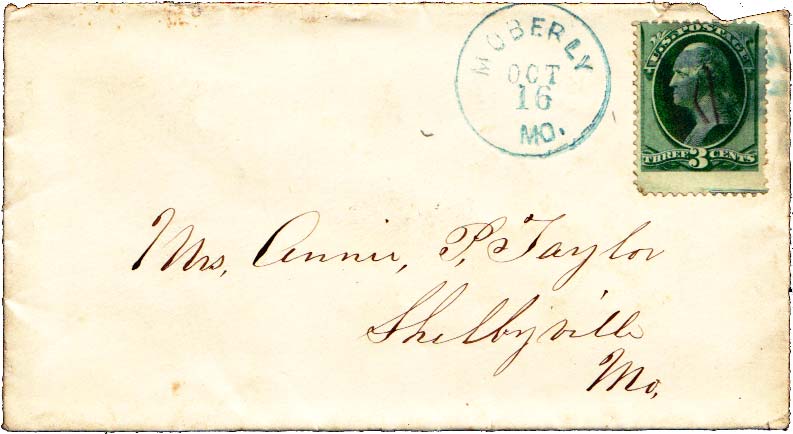 MOBERLY
OCT
16
MO.
U.S. POSTAGE
THREE 3 CENTS
Mrs, Annie, P, Taylor
Shelbyville
Mo,